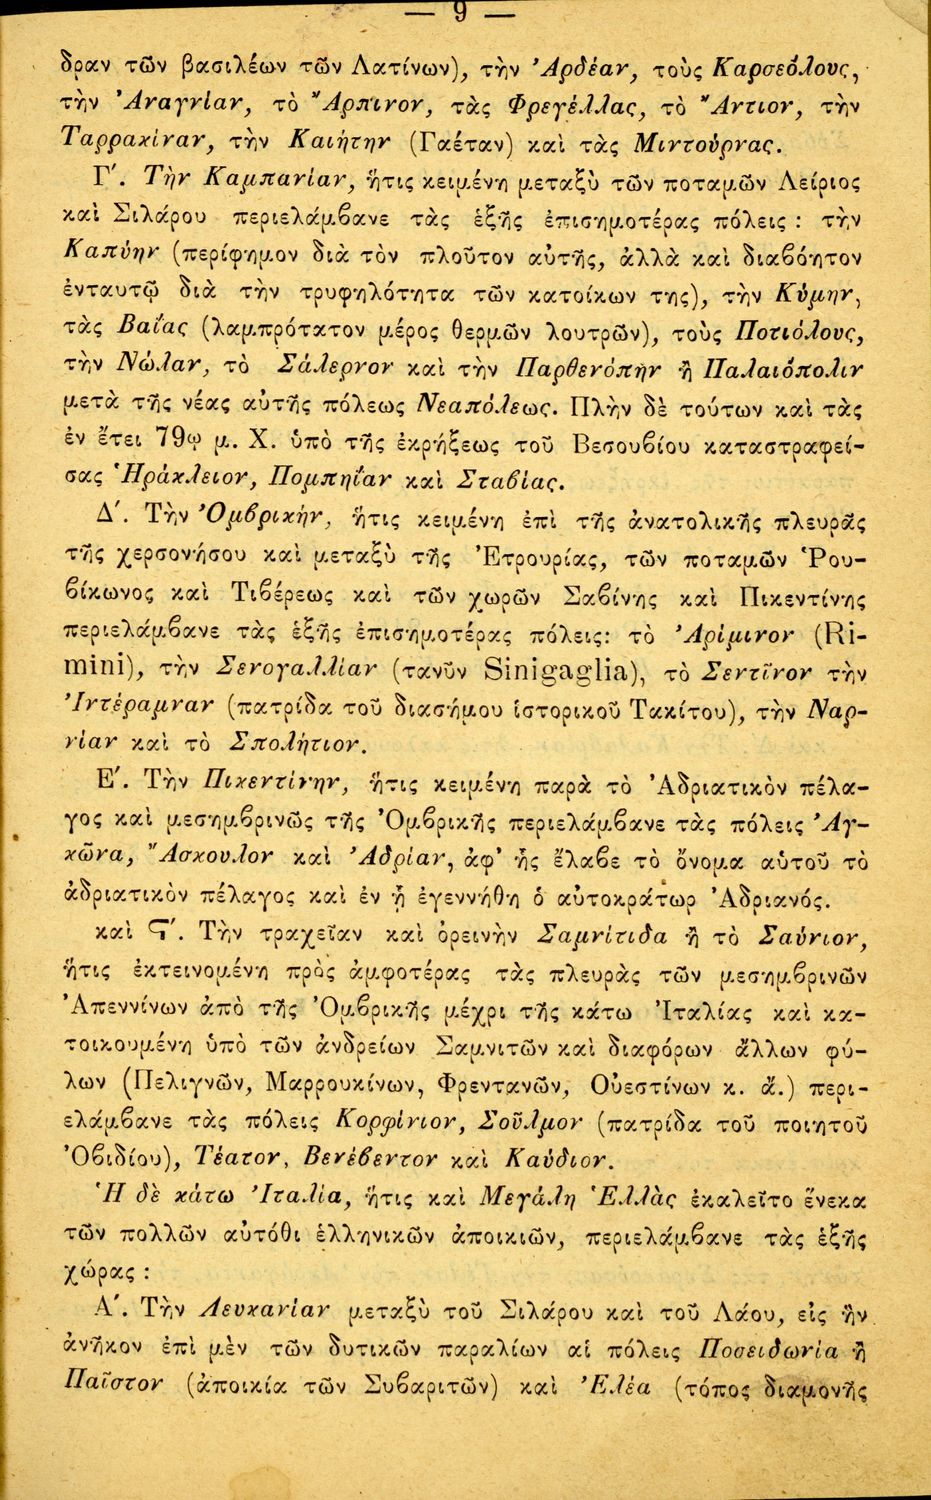 — 9 —
δραν τῶν βασιλέων τῶν Λατίνων), τὴν Ἀρδέαν, τοὺς Καρσεόλους,
τὴν Ἀναγνίαν, τὸ Ἄρπινον, τὰς Φρεγέλλας, τὸ Ἄντιον, τὴν
Ταρρακίναν, τὴν Καιήτην (Γαέταν) καὶ τὰς Μιντούρνας.
Γʹ. Τὴν Καμπανίαν, ἥτις κειμένη μεταξὺ τῶν ποταμῶν Λείριος
καὶ Σιλάρου περιελάμβανε τὰς ἑξῆς ἐπισημοτέρας πόλεις : τὴν
Καπύην (περίφημον διὰ τὸν πλοῦτον αὐτῆς, ἀλλὰ καὶ διαβόητον
ἐνταυτῷ διὰ τὴν τρυφηλότητα τῶν κατοίκων της), τὴν Κύμην,
τὰς Βαΐας (λαμπρότατον μέρος θερμῶν λουτρῶν), τοὺς Ποτιόλους,
τὴν Νώλαν, τὸ Σάλερνον καὶ τὴν Παρθενόπην ἢ Παλαιόπολιν
μετὰ τῆς νέας αὐτῆς πόλεως Νεαπόλεως. Πλὴν δὲ τούτων καὶ τὰς
ἐν ἔτει 79ῳ μ. Χ. ὑπὸ τῆς ἐκρήξεως τοῦ Βεσουβίου καταστραφεί-
σας Ἡράκλειον, Πομπηΐαν καὶ Σταβίας.
Δʹ. Τὴν Ὀμβρικήν, ἥτις κειμένη ἐπὶ τῆς ἀνατολικῆς πλευρᾶς
τῆς χερσονήσου καὶ μεταξὺ τῆς Ἐτρουρίας, τῶν ποταμῶν Ῥου-
βίκωνος καὶ Τιβέρεως καὶ τῶν χωρῶν Σαβίνης καὶ Πικεντίνης
περιελάμβανε τὰς ἑξῆς ἐπισημοτέρας πόλεις: τὸ Ἀρίμινον (Ri-
mini), τὴν Σενογαλλίαν (τανῦν Sinigaglia), τὸ Σεντῖνον τὴν
Ἰντέραμναν (πατρίδα τοῦ διασήμου ἱστορικοῦ Τακίτου), τὴν Ναρ-
νίαν καὶ τὸ Σπολήτιον.
Εʹ. Τὴν Πικεντίνην, ἥτις κειμένη παρὰ τὸ Ἀδριατικὸν πέλα-
γος καὶ μεσημβρινῶς τῆς Ὀμβρικῆς περιελάμβανε τὰς πόλεις Ἀγ-
κῶνα, Ἄσκουλον καὶ Ἀδρίαν, ἀφ' ἧς ἔλαβε τὸ ὄνομα αὑτοῦ τὸ
ἀδριατικὸν πέλαγος καὶ ἐν ᾗ ἐγεννήθη ὁ αὐτοκράτωρ Ἀδριανός.
καὶ Ϛʹ. Τὴν τραχεῖαν καὶ ὀρεινὴν Σαμνίτιδα ἢ τὸ Σαύνιον,
ἥτις ἐκτεινομένη πρὸς ἀμφοτέρας τὰς πλευρὰς τῶν μεσημβρινῶν
Ἀπεννίνων ἀπὸ τῆς Ὀμβρικῆς μέχρι τῆς κάτω Ἰταλίας καὶ κα-
τοικουμένη ὑπὸ τῶν ἀνδρείων Σαμνιτῶν καὶ διαφόρων ἄλλων φύ-
λων (Πελιγνῶν, Μαρρουκίνων, Φρεντανῶν, Οὐεστίνων κ. ἄ.) περι-
ελάμβανε τὰς πόλεις Κορφίνιον, Σοῦλμον (πατρίδα τοῦ ποιητοῦ
Ὀβιδίου), Τέατον, Βενέβεντον καὶ Καύδιον.
Ἡ δὲ κάτω Ἰταλία, ἥτις καὶ Μεγάλη Ἑλλὰς ἐκαλεῖτο ἕνεκα
τῶν πολλῶν αὐτόθι ἑλληνικῶν ἀποικιῶν, περιελάμβανε τὰς ἑξῆς
χώρας :
Αʹ. Τὴν Λευκανίαν μεταξὺ τοῦ Σιλάρου καὶ τοῦ Λάου, εἰς ἣν
ἀνῆκον ἐπὶ μὲν τῶν δυτικῶν παραλίων αἱ πόλεις Ποσειδωνία ἢ
Παῖστον (ἀποικία τῶν Συβαριτῶν) καὶ Ἐλέα (τόπος διαμονῆς